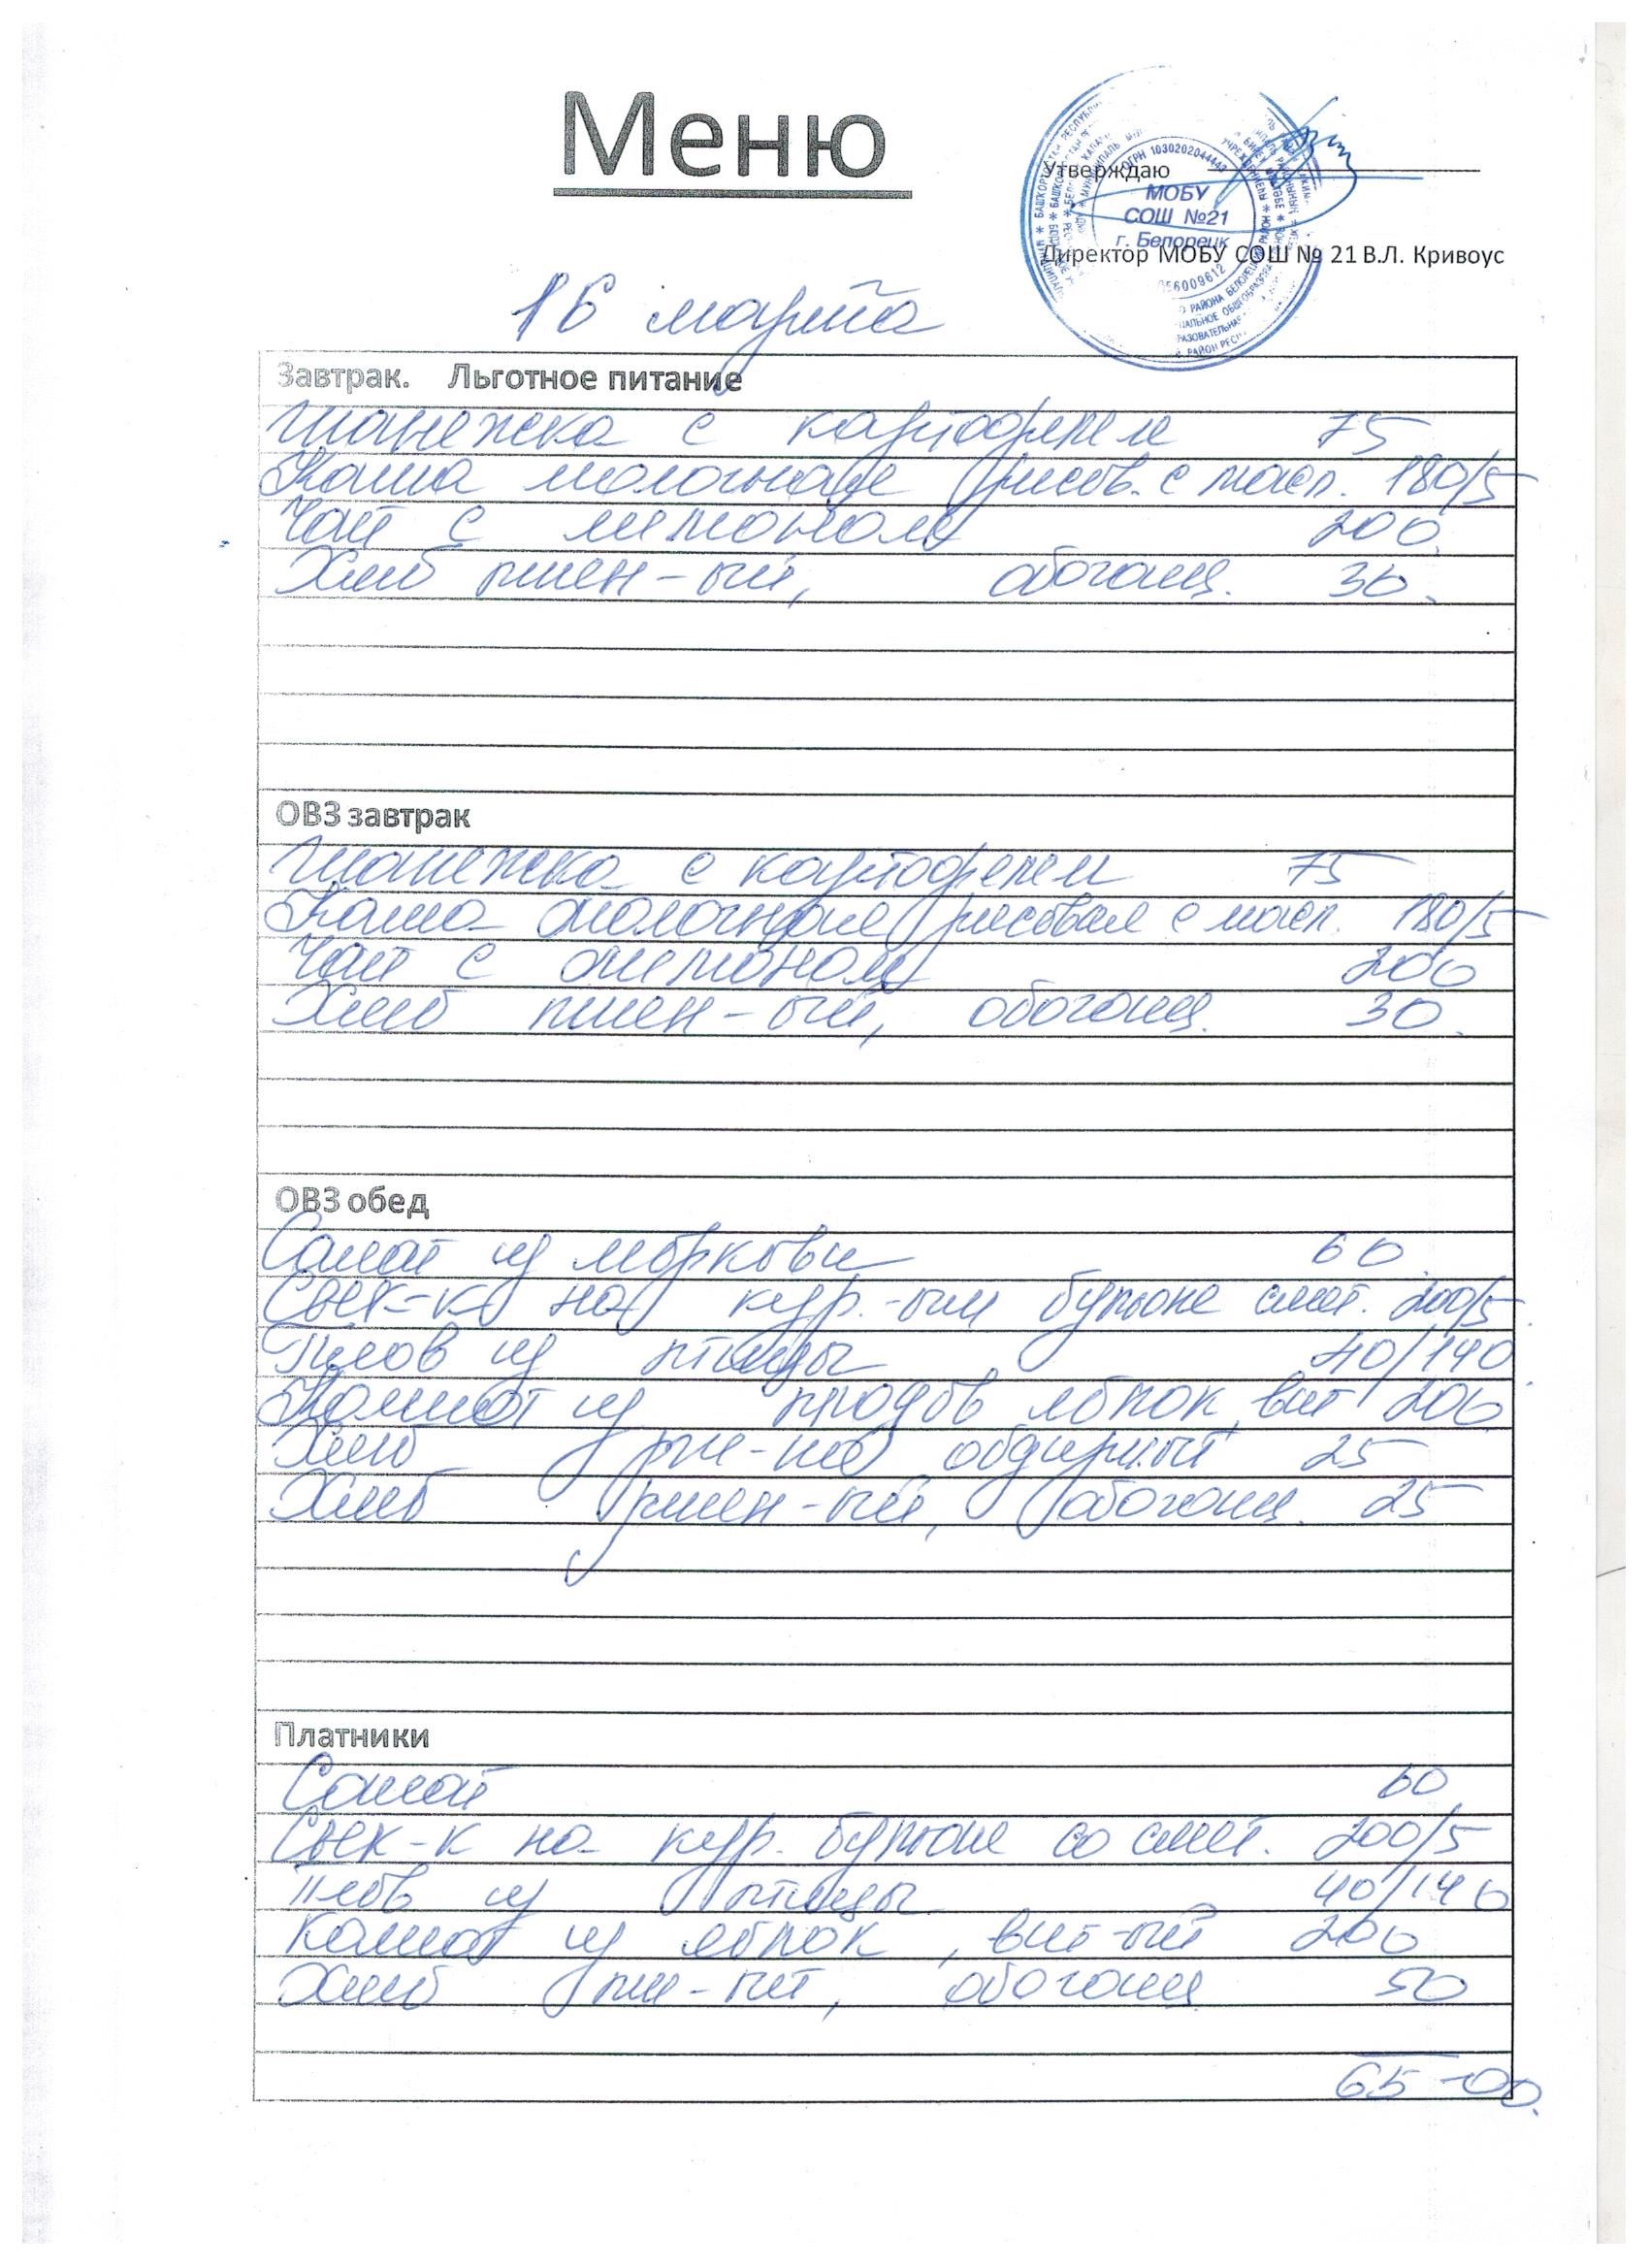 Меню
Утверждаю
ОГРН 1030202044443
МОБУ
СОШ №21
г. Белорецк
Директор МОБУ СОШ № 21 В.Л. Кривоус
16 марта
Завтрак. Льготное питание
Шанежка с картофелем 75
Каша молочная рисов. с масл. 180/5
Чай с лимоном 200.
Хлеб пшен-ый, обогащ. 30.
ОВЗ завтрак
Шанежка с картофелем 75
Каша молочная рисовая с масл. 180/5
Чай с лимоном 200
Хлеб пшен-ый, обогащ. 30.
ОВЗ обед
Салат из моркови 60.
Свек-к на кур.-ом бульоне смет. 200/5
Плов из птицы 40/140
Компот из плодов яблок, вит 200
Хлеб рж-но обдирный 25
Хлеб пшен-ый, обогащ. 25
Платники
Салат 60
Свек-к на кур. бульоне со смет. 200/5
Плов из птицы 40/140
Компот из яблок, вит-ый 200
Хлеб пш-ый, обогащ 50
65-00.